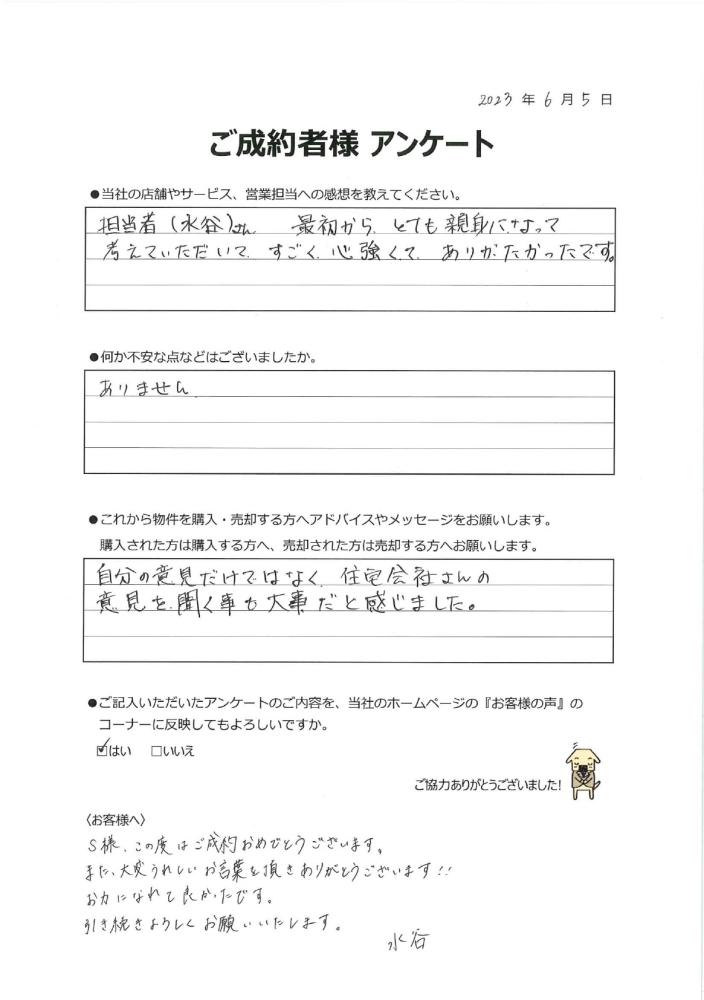 2023年6月5日
ご成約者様 アンケート
●当社の店舗やサービス、営業担当への感想を教えてください。
担当者(水谷)さん 最初から、とても親身になって
考えていただいて、すごく心強くて、ありがたかったです。
●何か不安な点などはございましたか。
ありません
●これから物件を購入・売却する方へアドバイスやメッセージをお願いします。
購入された方は購入する方へ、売却された方は売却する方へお願いします。
自分の意見だけではなく、住宅会社さんの
意見を聞く事も大事だと感じました。
●ご記入いただいたアンケートのご内容を、当社のホームページの『お客様の声』の
コーナーに反映してもよろしいですか。
☑はい □いいえ
ご協力ありがとうございました!
〈お客様へ〉
S様、この度はご成約おめでとうございます。
また、大変うれしいお言葉を頂きありがとうございます!!
お力になれて良かったです。
引き続きよろしくお願いいたします。
水谷